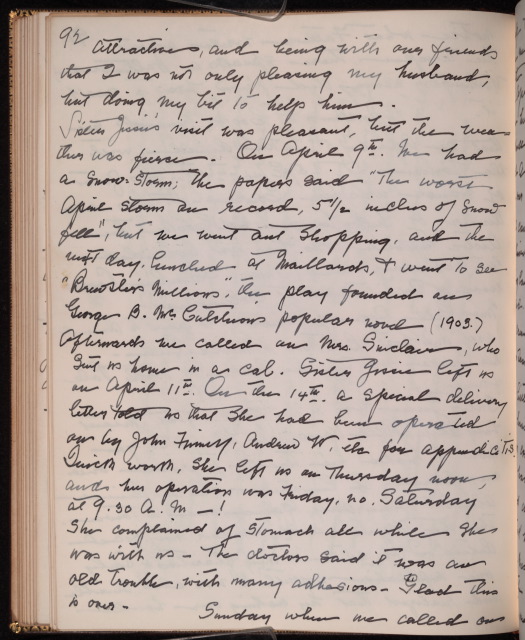 92
attractive, and being with our friends
that I was not only pleasing my husband,
but doing my bit to help him.
Sister Jessie's visit was pleasant, but the wea-
ther was fierce. On April 9th. we had
a Snow-Storm; the papers said "the worst
April Storm on record, 5 1/2 inches of Snow
fell", but we went out Shopping, and the
next day, lunched at Maillards, & went to see
"Brewster's Millions", the play founded on
George B. Mc Cutcheons popular novel (1903.)
Afterwards we called on Mrs. Sinclair, who
Sent us home in a cab. Sister Jessie left us
on April 11th. On the 14th. a special delivery
letter told us that She had been operated
on by John Finney, Andrew W. etc for appendicitis.
Quick work, She left us on Thursday noon,
and her operation was Friday, no. Saturday
at 9.30 A.M -!
She complained of Stomach all while She
was with us - The doctors said it was an
old trouble, with many adhesions - Glad this
is over -
Sunday when we called on